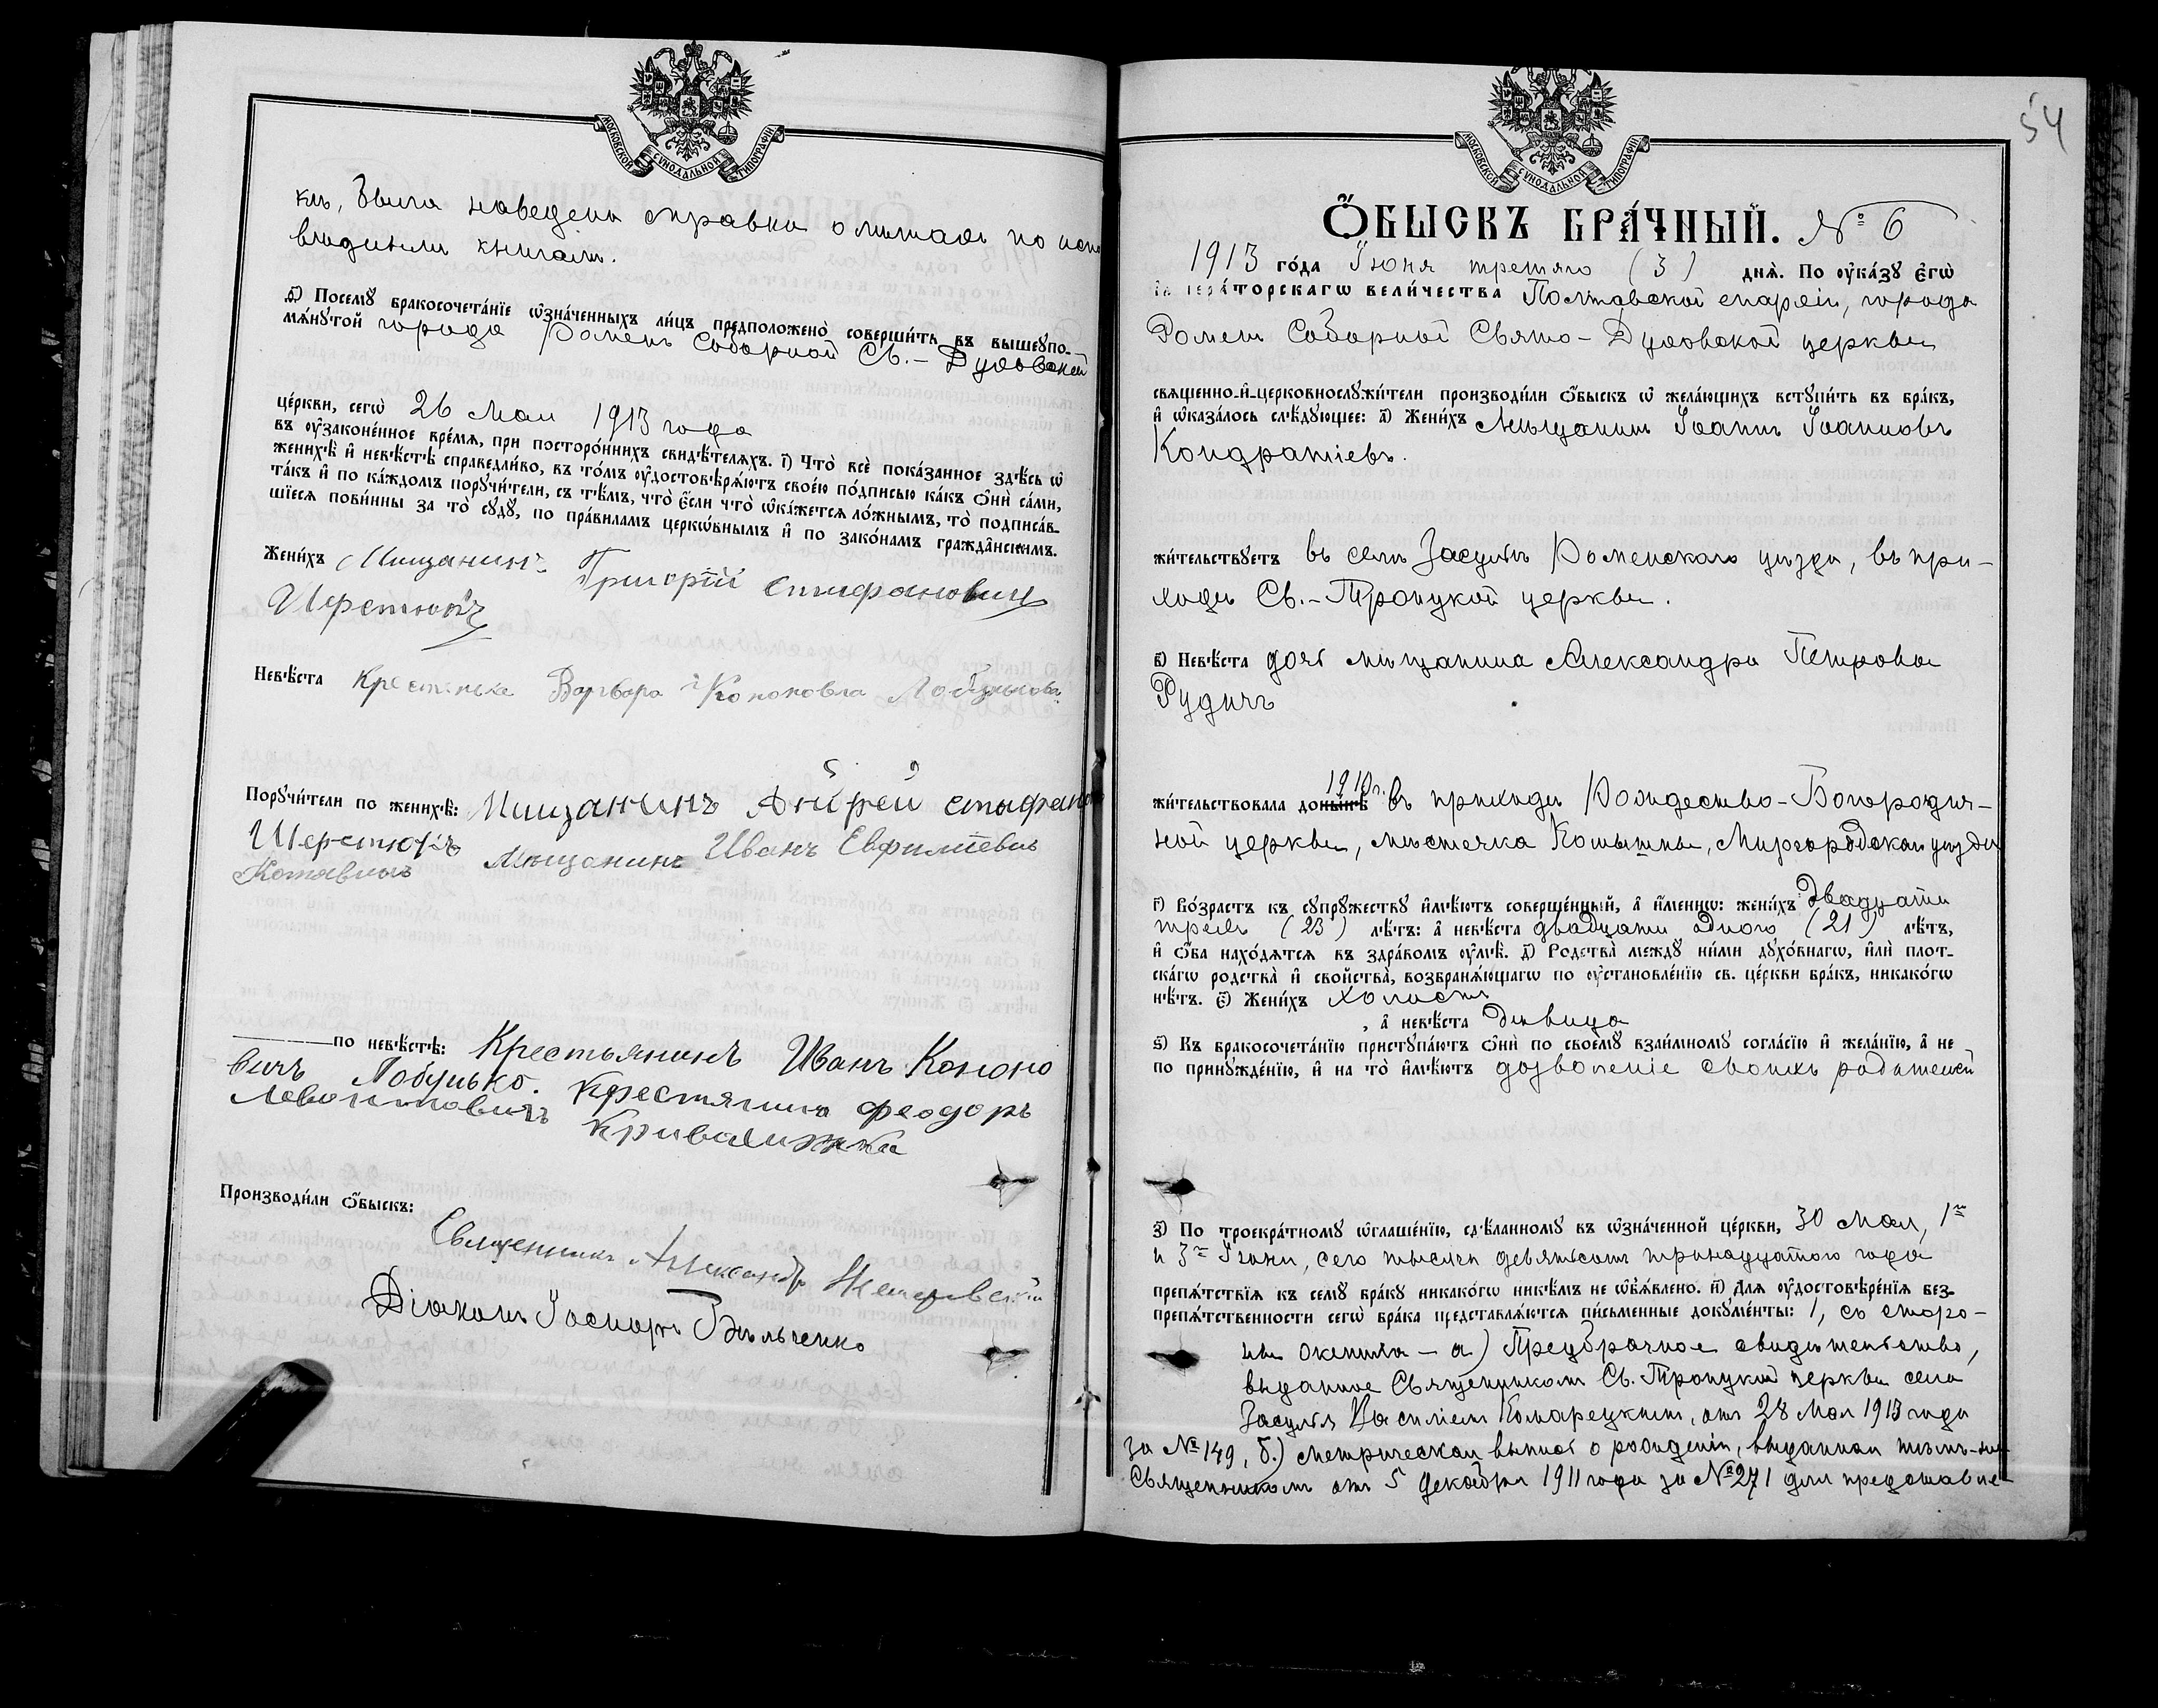 МОСКОВСКОЙ СѴНОДАЛЬНОЙ ТИПОГРАФІИ
кѣ, была наведена справка о лѣтахъ по испо
вѣднымъ книгамъ.
ѳ҃) Посемꙋ бракосочета́нїе ѡ҆зна́ченныхъ ли́цъ предположено̀ соверши́ть въ вышеꙋпо-
мѧ́нꙋтой города Роменъ Соборной Св.-Духовской
це́ркви, сегѡ̀ 26 Мая 1913 года
въ ᲂу҆законе́нное вре́мѧ, при посторо́ннихъ свидѣ́телѧхъ. і҃) Что̀ всѐ пока́занное здѣ́сь ѡ҆
женихѣ̀ и҆ невѣ́стѣ справедли́во, въ то́мъ ᲂу҆достовѣрѧ́ютъ свое́ю по́дписью ка́къ ѻ҆нѝ са́ми,
та́къ и҆ по ка́ждомъ порꙋчи́тели, съ тѣ́мъ, что̀ є҆́сли что̀ ѡ҆ка́жетсѧ ло́жнымъ, то̀ подписа́в-
шїесѧ пови́нны за то̀ сꙋдꙋ̀, по пра́виламъ церкѡ́внымъ и҆ по зако́намъ гражда́нскимъ.
Жени́хъ Мищанинъ Григорій Стифановичъ
Шерстюкъ
Невѣ́ста Крестьнка Варвара Кононовна
Порꙋчи́тели по женихѣ̀: Мищанинъ Андрей стифано
Шерстюкъ Мѣщанинъ Иванъ
по невѣ́стѣ: Крестьянинъ Иванъ Кононо
вичъ Лобунько. Крестянинъ Феодоръ
Производи́ли ѻ҆́быскъ:
Священникъ Александръ
Діаконъ
54
МОСКОВСКОЙ СѴНОДАЛЬНОЙ ТИПОГРАФІИ
Ѻ҆́БЫСКЪ БРА́ЧНЫЙ. № 6
1913 го́да Іюня третяго (3) днѧ̀. По ᲂу҆ка́зꙋ є҆гѡ̀
и҆мпера́торскагѡ вели́чества Полтавской епархіи, города
Роменъ Соборной Свято-Духовской церкви
свѧще́нно-и҆-церковнослꙋжи́тели производи́ли ѻ҆́быскъ ѡ҆ жела́ющихъ встꙋпи́ть въ бра́къ,
и҆ ѡ҆каза́лось слѣ́дꙋющее: а҃) Жени́хъ Мѣщанинъ Іоаннъ Іоанновъ
Кондратіевъ.
жи́тельствꙋетъ въ селѣ Засульѣ Роменскаго уѣзда, въ при-
ходѣ Св.-Троицкой церкви.
в҃) Невѣ́ста дочь мѣщанина Александра Петрова
Рудичъ
1910 г.
жи́тельствовала донынѣ въ приходѣ Рождество-Богородич-
ной церкви, мѣстечка Комышны, Миргородскаго уѣзда
г҃) Во́зрастъ къ сꙋпрꙋ́жествꙋ и҆мѣ́ютъ соверше́нный, а҆ и҆́меннѡ: жени́хъ двадцати
трехъ (23) лѣ́тъ: а҆ невѣ́ста двадцати одного (21) лѣ́тъ,
и҆ ѻ҆́ба нахо́дѧтсѧ въ здра́вомъ ᲂу҆мѣ̀. д҃) Родства̀ междꙋ ни́ми дꙋхо́внагѡ, и҆лѝ плот-
ска́гѡ родства̀ и҆ сво́йства̀, возбранѧ́ющагѡ по ᲂу҆становле́нїю св. це́ркви бра́къ, никако́гѡ
нѣ́тъ. є҃) Жени́хъ холостъ
, а҆ невѣ́ста дѣвица
ѕ҃) Къ бракосочета́нїю пристꙋпа́ютъ ѻ҆нѝ по своемꙋ̀ взаи́мномꙋ согла́сїю и҆ жела́нїю, а҆ не
по принꙋжде́нїю, и҆ на то̀ и҆мѣ́ютъ дозволеніе своихъ родителей
з҃) По троекра́тномꙋ ѡ҆глаше́нїю, сдѣ́ланномꙋ въ ѡ҆зна́ченной це́ркви, 30 Мая, 1го
и 3го Іюня, сего тысяча девятьсотъ тринадцатого года
препѧ́тствїѧ къ семꙋ̀ бра́кꙋ никако́гѡ никѣ́мъ не ѡ҆б̾ѧ́влено. и҃) Длѧ ᲂу҆достовѣре́нїѧ без-
препѧ́тственности сегѡ̀ бра́ка представлѧ́ютсѧ пи́сьменные докꙋме́нты: 1, со сторо-
ны жениха - а) Предбрачное свидѣтельство,
выданное Священникомъ Св. Троицкой церкви села
Засулья Василіемъ Комарецкимъ, отъ 28 Мая 1913 года
за № 149, б.) метрическая выпись о рожденіи, выданная тѣмъ-же
Священникомъ отъ 5 декабря 1911 года за № 271 для представле-